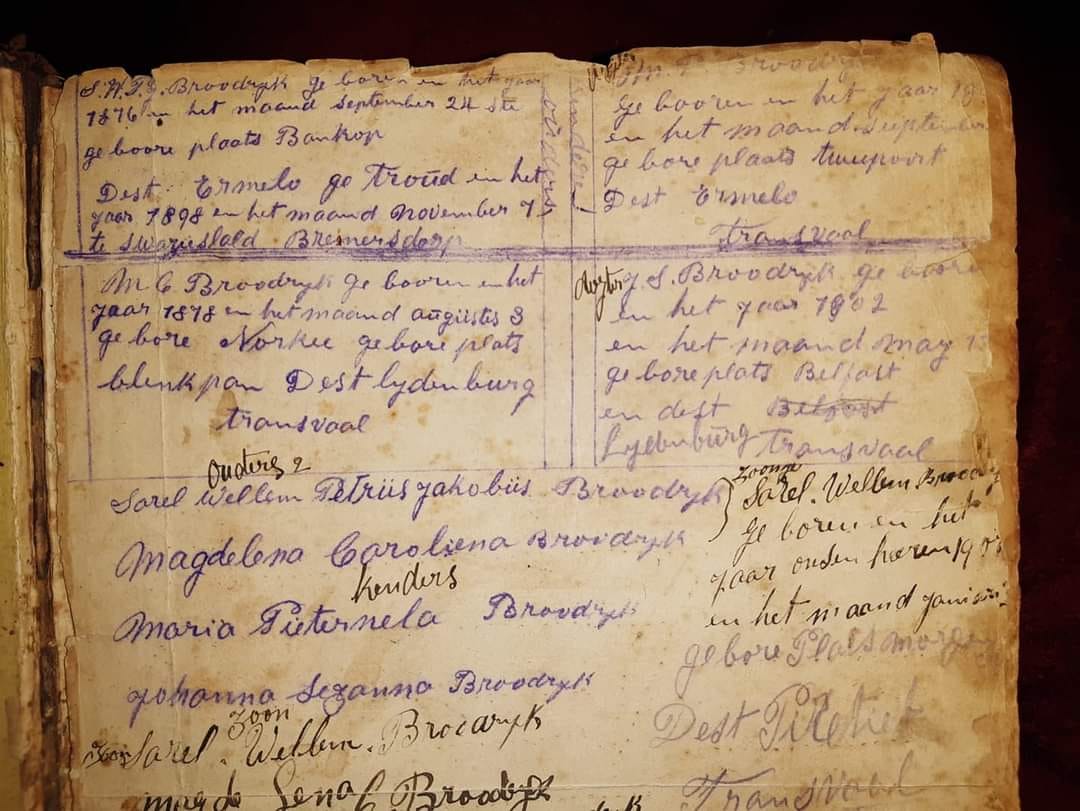 S.W.P.J. Broodryk ge boren en het jaar
1876 en het maand September 24 ste
ge boore plaats Bankop
Dest Ermelo ge Troud en het
jaar 1898 en het maand November 7
te Swazieslald Bremersdorp
M C Broodryk ge booren en het
jaar 1878 en het maand augustis 3
ge bore Norkee ge bore plats
blenkpan Dest lydenburg
transvaal
ouders
kendere
M. P. Broodryk
ge booren en het jaar 19
en het maand September
ge bore plaats tweepoort
Dest Ermelo
Transvaal
dogter J. S. Broodryk ge boore
en het jaar 1902
en het maand May 1
ge bore plats Belfast
en dest Belfast
Lydenburg Transvaal
ouders 2
Sarel Wellem Petrus Jakobus Broodryk
Magdelena Caroliena Broodryk
kenders
Maria Pieternela Broodryk
Johanna Sezanna Broodryk
zoon
zoon Sarel. Wellem. Broodryk
magda Lena C Broodryk
zoon
Sarel. Wellem Broody
ge boren en het
jaar onsen heren 190
en het maand janiari
ge bore Plats
Dest Piketief
Transvaal